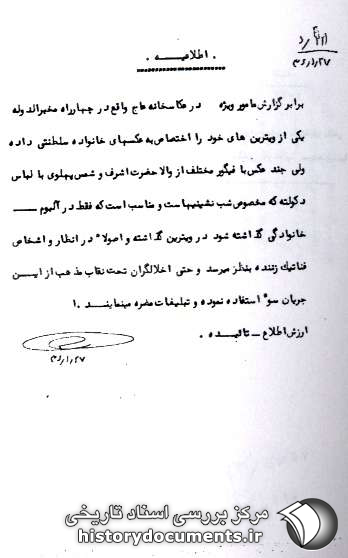 . اطلاعیه .
برابر گزارش مامور ویژه در عکاسخانه عاج واقع در چهارراه مخبرالدوله
یکی از ویترین های خود را اختصاص به عکسهای خانواده سلطنتی داده
ولی چند عکس با فیگور مختلف از والا حضرت اشرف و شمس پهلوی با لباس
دکولته که مخصوص شب نشینیهاست و مناسب است که فقط در آلبوم
خانوادگی گذاشته شود در ویترین گذاشته و اصولا" در انظار و اشخاص
فناتیک زننده بنظر میرسد و حتی اخلالگران تحت نقاب مذهب از ایـن
جریان سوء استفاده نموده و تبلیغات مضره مینمایند . ا
ارزش اطلاع ـ تائیده .
مرکز بررسی اسناد تاریخی
historydocuments.ir